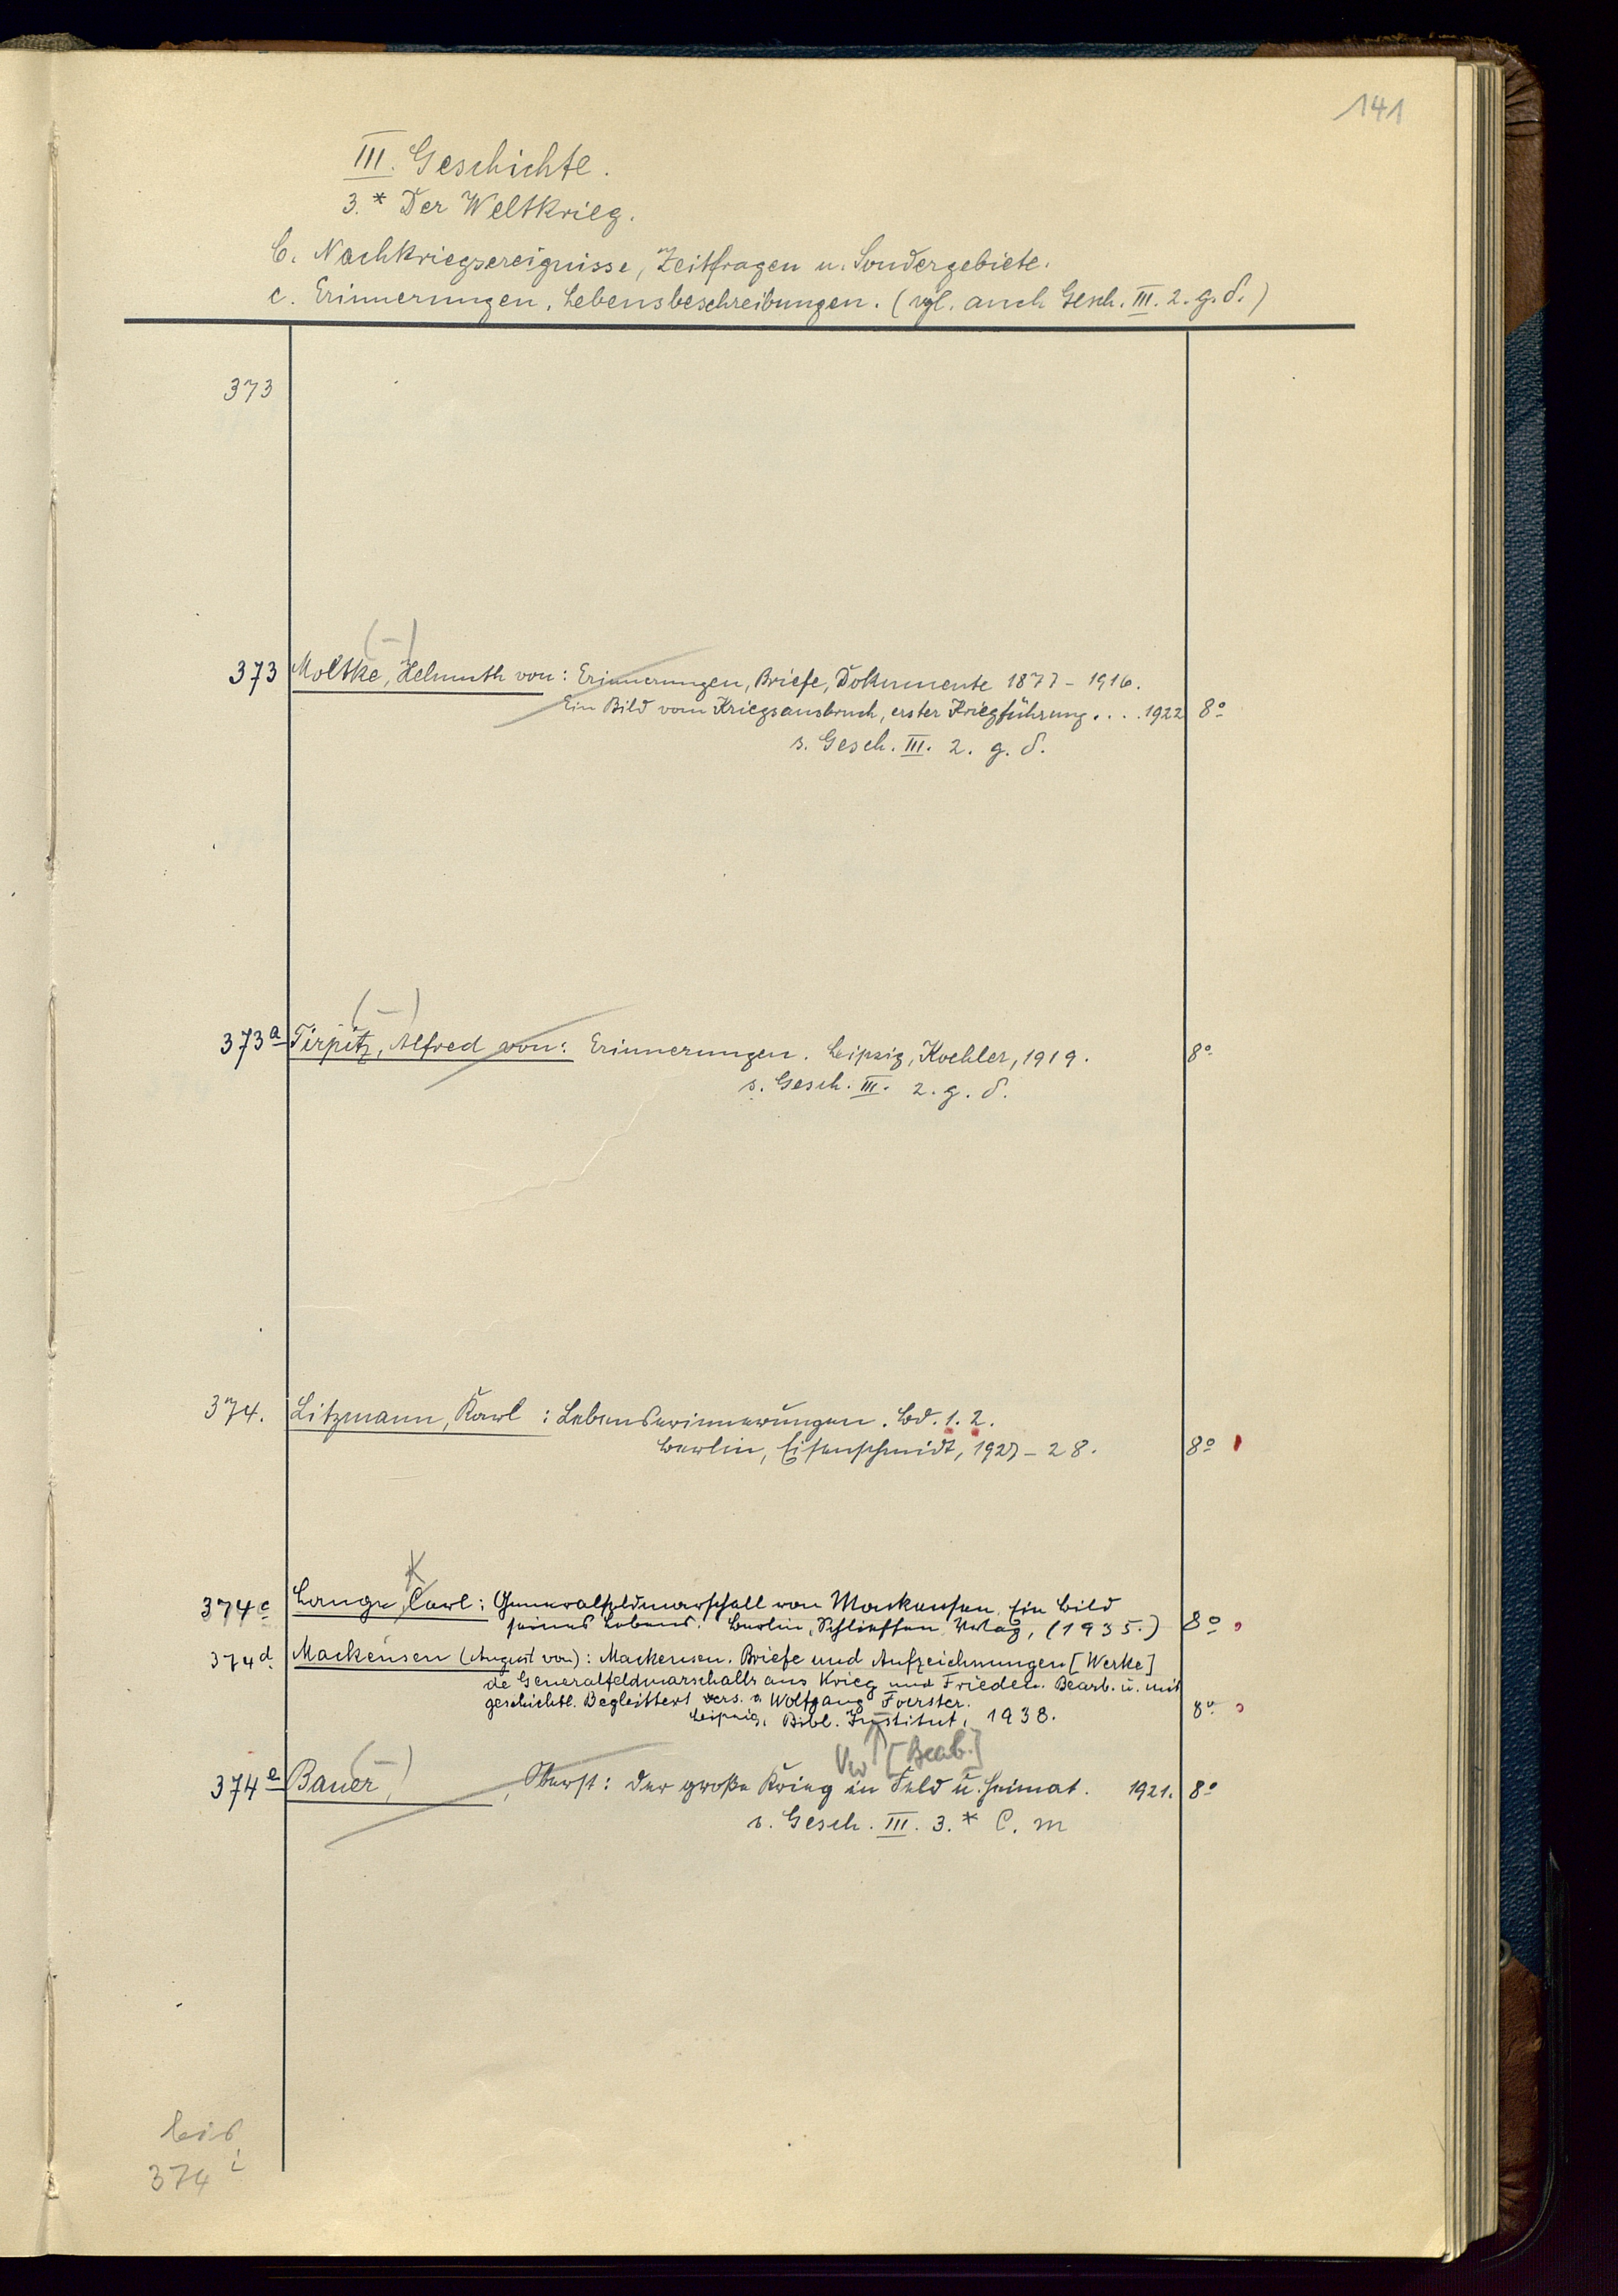 141
III. Geschichte.
3.* Der Weltkrieg.
C. Nachkriegsereignisse, Zeitfragen u. Sondergebiete.
c. Erinnerungen, Lebensbeschreibungen. (vgl. auch Gesch. III. 2. g. δ.)
373
(-)
373 Moltke, Helmuth von: Erinnerungen, Briefe, Dokumente 1877-1916.
Ein Bild vom Kriegsausbruch, erster Kriegführung.... 1922 8°
s. Gesch. III. 2. g. δ.
(-)
373a Tirpitz, Alfred von: Erinnerungen. Leipzig, Koehler, 1919. 8°
s. Gesch. III. 2. g. δ.
374. Litzmann, Karl: Lebenserinnerungen. Bd. 1. 2.
Berlin, Eisenschmidt, 1927-28. 8°
K
374c Lange, Carl: Generalfeldmarschall von Mackensen. Ein Bild
seines Lebens. Berlin, Schlieffen Verlag, (1935.) 8°
374d. Mackensen (August von): Mackensen. Briefe und Aufzeichnungen [Werke]
de Generalfeldmarschalls aus Krieg und Frieden. Bearb. u. mit
geschichtl. Begleittext vers. v. Wolfgang Foerster.
Leipzig, Bibl. Institut, 1938. 8°
Vw ↑ [Bearb.]
(-)
374e Bauer, , Oberst: Der große Krieg in Feld u. Heimat. 1921. 8°
s. Gesch. III. 3.* C. m
bis
374 i